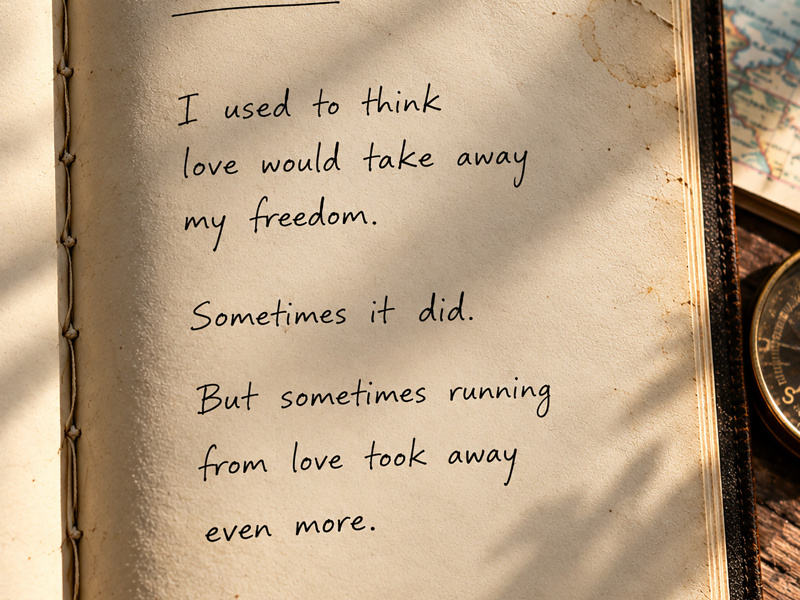 I used to think
love would take away
my freedom.
Sometimes it did.
But sometimes running
from love took away
even more.